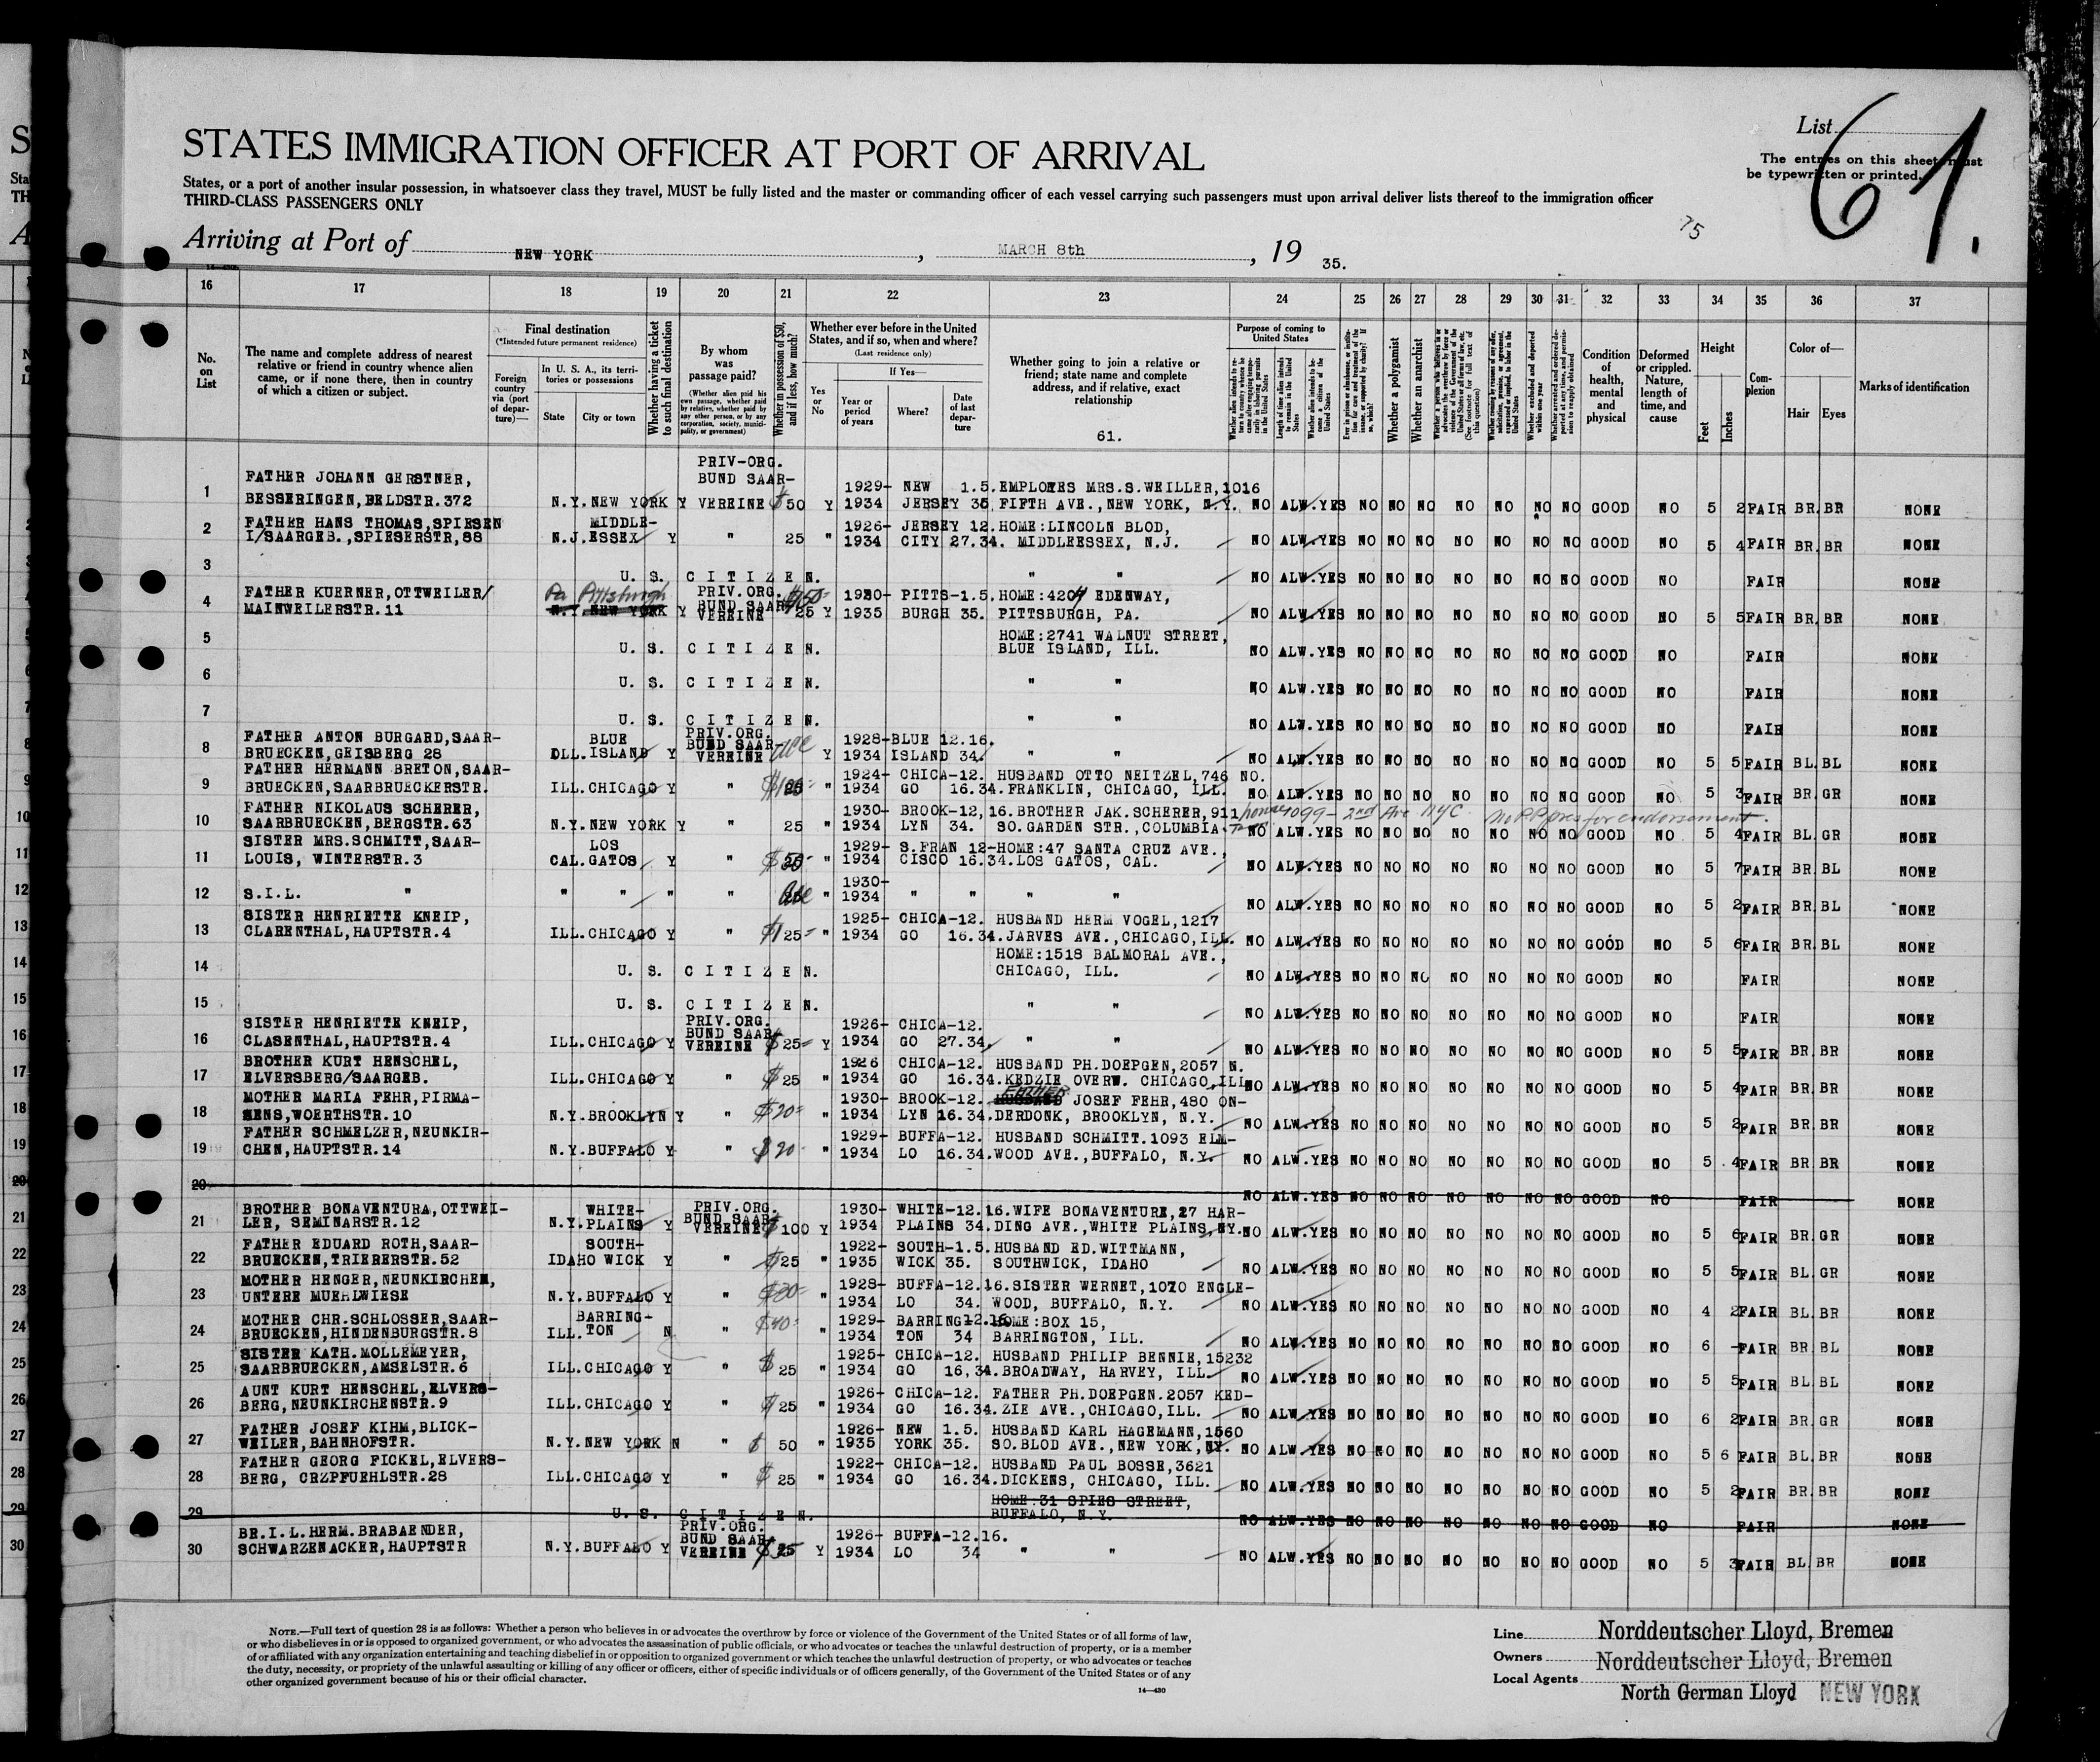 STATES IMMIGRATION OFFICER AT PORT OF ARRIVAL
List 61.
The entries on this sheet must
be typewritten or printed.
States, or a port of another insular possession, in whatsoever class they travel, MUST be fully listed and the master or commanding officer of each vessel carrying such passengers must upon arrival deliver lists thereof to the immigration officer
THIRD-CLASS PASSENGERS ONLY
75
Arriving at Port of NEW YORK, MARCH 8th, 19 35.
16 17 18 19 20 21 22 23 24 25 26 27 28 29 30 31 32 33 34 35 36 37
No. on List
The name and complete address of nearest relative or friend in country whence alien came, or if none there, then in country of which a citizen or subject.
Final destination
(*Intended future permanent residence)
Foreign country via (port of departure)—
In U. S. A., its territories or possessions
State
City or town
Whether having a ticket to such final destination
By whom was passage paid?
(Whether alien paid his own passage, whether paid by relative, whether paid by any other person, or by any corporation, society, municipality, or government)
Whether in possession of $50, and if less, how much?
Whether ever before in the United States, and if so, when and where?
(Last residence only)
Yes or No
If Yes—
Year or period of years
Where?
Date of last departure
Whether going to join a relative or friend; state name and complete address, and if relative, exact relationship
61.
Purpose of coming to United States
Whether a polygamist
Whether an anarchist
Condition of health, mental and physical
Deformed or crippled. Nature, length of time, and cause
Height
Feet
Inches
Complexion
Color of—
Hair
Eyes
Marks of identification
PRIV-ORG.
FATHER JOHANN GERSTNER, BUND SAAR- 1929- NEW 1.5. EMPLOYES MRS.S.WEILLER,1016
1 BESSERINGEN,BELDSTR.372 N.Y. NEW YORK Y VEREINE $ 50 Y 1934 JERSEY 35 FIFTH AVE., NEW YORK, N.Y. NO ALW. YES NO NO NO NO NO NO NO GOOD NO 5 2 FAIR BR. BR NONE
FATHER HANS THOMAS,SPIESEN MIDDLE- 1926- JERSEY 12. HOME:LINCOLN BLOD,
2 I/SAARGEB.,SPIESERSTR,88 N.J. ESSEX Y " 25 " 1934 CITY 27.34. MIDDLEESSEX, N.J. NO ALW. YES NO NO NO NO NO NO NO GOOD NO 5 4 FAIR BR. BR NONE
3 U. S. C I T I Z E N. " " NO ALW. YES NO NO NO NO NO NO NO GOOD NO FAIR NONE
FATHER KUERNER,OTTWEILER/ Pa Pittsburgh PRIV.ORG. BUND SAAR- $50- 1930- PITTS-1.5. HOME:4204 EDENWAY,
4 MAINWEILERSTR.11 N.Y. NEW YORK Y VEREINE 25 Y 1935 BURGH 35. PITTSBURGH, PA. NO ALW. YES NO NO NO NO NO NO NO GOOD NO 5 5 FAIR BR. BR NONE
HOME:2741 WALNUT STREET,
5 U. S. C I T I Z E N. BLUE ISLAND, ILL. NO ALW. YES NO NO NO NO NO NO NO GOOD NO FAIR NONE
6 U. S. C I T I Z E N. " " NO ALW. YES NO NO NO NO NO NO NO GOOD NO FAIR NONE
7 U. S. C I T I Z E N. " " NO ALW. YES NO NO NO NO NO NO NO GOOD NO FAIR NONE
FATHER ANTON BURGARD,SAAR- BLUE PRIV.ORG. BUND SAAR- 1928- BLUE 12.16.
8 BRUECKEN,GEISBERG 28 ILL. ISLAND Y VEREINE Y 1934 ISLAND 34. " " NO ALW. YES NO NO NO NO NO NO NO GOOD NO 5 5 FAIR BL. BL NONE
FATHER HERMANN BRETON,SAAR- 1924- CHICA-12. HUSBAND OTTO NEITZEL,746 NO.
9 BRUECKEN,SAARBRUECKERSTR. ILL. CHICAGO Y " " 1934 GO 16.34. FRANKLIN, CHICAGO, ILL. NO ALW. YES NO NO NO NO NO NO NO GOOD NO 5 3 FAIR BR. GR NONE
FATHER NIKOLAUS SCHERER, 1930- BROOK-12,16. BROTHER JAK.SCHERER,911 home 4099 - 2nd Ave NYC
10 SAARBRUECKEN,BERGSTR.63 N.Y. NEW YORK Y " 25 " 1934 LYN 34. SO.GARDEN STR.,COLUMBIA NO ALW. YES NO NO NO NO NO NO NO GOOD NO 5 4 FAIR BL. GR NONE
SISTER MRS.SCHMITT,SAAR- LOS 1929- S.FRAN 12- HOME:47 SANTA CRUZ AVE.,
11 LOUIS, WINTERSTR.3 CAL. GATOS Y " $50- " 1934 CISCO 16.34. LOS GATOS, CAL. NO ALW. YES NO NO NO NO NO NO NO GOOD NO 5 7 FAIR BR. BL NONE
1930-
12 S.I.L. " " " " " " 1934 " " " " NO ALW. YES NO NO NO NO NO NO NO GOOD NO 5 2 FAIR BR. BL NONE
SISTER HENRIETTE KNEIP, 1925- CHICA-12. HUSBAND HERM VOGEL,1217
13 CLARENTHAL,HAUPTSTR.4 ILL. CHICAGO Y " $125- " 1934 GO 16.34. JARVES AVE.,CHICAGO,ILL. NO ALW. YES NO NO NO NO NO NO NO GOOD NO 5 6 FAIR BR. BL NONE
HOME:1518 BALMORAL AVE.,
14 U. S. C I T I Z E N. CHICAGO, ILL. NO ALW. YES NO NO NO NO NO NO NO GOOD NO FAIR NONE
15 U. S. C I T I Z E N. " " NO ALW. YES NO NO NO NO NO NO NO GOOD NO FAIR NONE
SISTER HENRIETTE KNEIP, PRIV.ORG. BUND SAAR- 1926- CHICA-12.
16 CLASENTHAL,HAUPTSTR.4 ILL. CHICAGO Y VEREINE $ 25- Y 1934 GO 27.34. " " NO ALW. YES NO NO NO NO NO NO NO GOOD NO 5 5 FAIR BR. BR NONE
BROTHER KURT HENSCHEL, 1926 CHICA-12. HUSBAND PH.DOEPGEN,2057 N.
17 ELVERSBERG/SAARGEB. ILL. CHICAGO Y " $ 25 " 1934 GO 16.34. KEDZIE OVERW. CHICAGO,ILL. NO ALW. YES NO NO NO NO NO NO NO GOOD NO 5 4 FAIR BR. BR NONE
MOTHER MARIA FEHR,PIRMA- 1930- BROOK-12. FATHER HUSBAND JOSEF FEHR,480 ON-
18 SENS,WOERTHSTR.10 N.Y. BROOKLYN Y " $20- " 1934 LYN 16.34. DERDONK, BROOKLYN, N.Y. NO ALW. YES NO NO NO NO NO NO NO GOOD NO 5 2 FAIR BR. BR NONE
FATHER SCHMELZER,NEUNKIR- 1929- BUFFA-12. HUSBAND SCHMITT.1093 ELM-
19 CHEN,HAUPTSTR.14 N.Y. BUFFALO Y " $20- " 1934 LO 16.34. WOOD AVE.,BUFFALO, N.Y. NO ALW. YES NO NO NO NO NO NO NO GOOD NO 5 4 FAIR BR. BR NONE
20 NO ALW. YES NO NO NO NO NO NO NO GOOD NO FAIR NONE
BROTHER BONAVENTURA,OTTWEI- WHITE- PRIV.ORG. BUND SAAR- 1930- WHITE-12.16. WIFE BONAVENTURE,27 HAR-
21 LER, SEMINARSTR.12 N.Y. PLAINS Y VEREINE $ 100 Y 1934 PLAINS 34. DING AVE.,WHITE PLAINS,NY. NO ALW. YES NO NO NO NO NO NO NO GOOD NO 5 6 FAIR BR. GR NONE
FATHER EDUARD ROTH,SAAR- SOUTH- 1922- SOUTH-1.5. HUSBAND ED.WITTMANN,
22 BRUECKEN,TRIERERSTR.52 IDAHO WICK Y " $25 " 1935 WICK 35. SOUTHWICK, IDAHO NO ALW. YES NO NO NO NO NO NO NO GOOD NO 5 5 FAIR BL. GR NONE
MOTHER HENGER,NEUNKIRCHEN, 1928- BUFFA-12.16. SISTER WERNET,1070 ENGLE-
23 UNTERE MUEHLWIESE N.Y. BUFFALO Y " " 1934 LO 34. WOOD, BUFFALO, N.Y. NO ALW. YES NO NO NO NO NO NO NO GOOD NO 4 2 FAIR BL. BR NONE
MOTHER CHR.SCHLOSSER,SAAR- BARRING- 1929- BARRING-12.16. HOME:BOX 15,
24 BRUECKEN,HINDENBURGSTR.8 ILL. TON N " $40- " 1934 TON 34 BARRINGTON, ILL. NO ALW. YES NO NO NO NO NO NO NO GOOD NO 6 - FAIR BR. BL NONE
SISTER KATH.MOLLEMEYER, 1925- CHICA-12. HUSBAND PHILIP BENNIE,15232
25 SAARBRUECKEN,AMSELSTR.6 ILL. CHICAGO Y " $ 25 " 1934 GO 16,34. BROADWAY, HARVEY, ILL. NO ALW. YES NO NO NO NO NO NO NO GOOD NO 5 5 FAIR BL. BL NONE
AUNT KURT HENSCHEL,ELVERS- 1926- CHICA-12. FATHER PH.DOEPGEN.2057 KED-
26 BERG,NEUNKIRCHENSTR.9 ILL. CHICAGO Y " $ 25 " 1934 GO 16.34. ZIE AVE.,CHICAGO,ILL. NO ALW. YES NO NO NO NO NO NO NO GOOD NO 6 2 FAIR BR. GR NONE
FATHER JOSEF KIHM,BLICK- 1926- NEW 1.5. HUSBAND KARL HAGEMANN,1560
27 WEILER,BAHNHOFSTR. N.Y. NEW YORK N " $ 50 " 1935 YORK 35. SO.BLOD AVE.,NEW YORK,NY. NO ALW. YES NO NO NO NO NO NO NO GOOD NO 5 6 FAIR BL. BR NONE
FATHER GEORG FICKEL,ELVERS- 1922- CHICA-12. HUSBAND PAUL BOSSE,3621
28 BERG, CRZPFUEHLSTR.28 ILL. CHICAGO Y " $ 25 " 1934 GO 16.34. DICKENS, CHICAGO, ILL. NO ALW. YES NO NO NO NO NO NO NO GOOD NO 5 2 FAIR BR. BR NONE
HOME:31 SPIES STREET,
29 U. S. C I T I Z E N. BUFFALO, N.Y. NO ALW. YES NO NO NO NO NO NO NO GOOD NO FAIR NONE
BR.I.L.HERM.BRABAENDER, PRIV.ORG. BUND SAAR- 1926- BUFFA-12.16.
30 SCHWARZENACKER,HAUPTSTR N.Y. BUFFALO Y VEREINE Y 1934 LO 34 " " NO ALW. YES NO NO NO NO NO NO NO GOOD NO 5 3 FAIR BL. BR NONE
NOTE.—Full text of question 28 is as follows: Whether a person who believes in or advocates the overthrow by force or violence of the Government of the United States or of all forms of law,
or who disbelieves in or is opposed to organized government, or who advocates the assassination of public officials, or who advocates or teaches the unlawful destruction of property, or is a member
of or affiliated with any organization entertaining and teaching disbelief in or opposition to organized government or which teaches the unlawful destruction of property, or who advocates or teaches
the duty, necessity, or propriety of the unlawful assaulting or killing of any officer or officers, either of specific individuals or of officers generally, of the Government of the United States or of any
other organized government because of his or their official character.
14—430
Line Norddeutscher Lloyd, Bremen
Owners Norddeutscher Lloyd, Bremen
Local Agents North German Lloyd NEW YORK